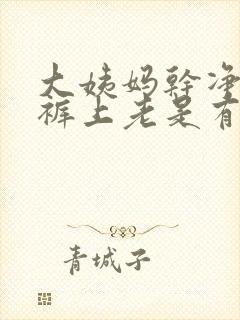 大姨妈幹净
裤上老是有
青城子